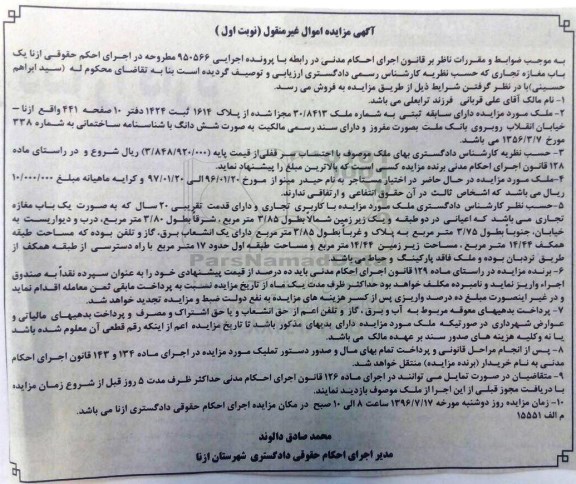 آگهی مزایده اموال غیرمنقول (نوبت اول)
به موجب ضوابط و مقررات ناظر بر قانون اجرای احکام مدنی در رابطه با پرونده اجرایی ۹۵۰۵۶۶ مطروحه در اجرای احکم حقوقی ازنا یک
باب مغازه تجاری که حسب نظریه کارشناس رسمی دادگستری ارزیابی و توصیف گردیده است بنا به تقاضای محکوم له (سید ابراهم
حسینی)با در نظر گرفتن شرایط ذیل از طریق مزایده به فروش می رسد.
۱- نام مالک آقای علی قربانی فرزند ترابعلی می باشد.
۲- ملک مورد مزایده دارای سابقه ثبتی به شماره ملک ۳۰/۸۴۱۳ مجزا شده از پلاک ۱۶۱۴ ثبت ۱۴۲۴ دفتر ۱۰ صفحه ۴۴۱ واقع ازنا -
خیابان انقلاب روبروی بانک ملت بصورت مفروز و دارای سند رسمی مالکیت به صورت شش دانگ با شناسنامه ساختمانی به شماره ۳۳۸
مورخ ۱۳۵۶/۳/۷ می باشد.
۳- حسب نظریه کارشناس دادگستری بهای ملک موصوف با احتساب سر قفلی از قیمت پایه (۳/۸۴۸/۹۲۰/۰۰۰) ریال شروع و در راستای ماده
۱۲۸ قانون اجرای احکام مدنی برنده مزایده کسی است که بالاترین مبلغ را پیشنهاد نماید.
۴-ملک مورد مزایده در حال حاضر در اختیار مستأجر به نام حیدر مینو از مورخ ۹۶/۰۱/۲۰ الی ۹۷/۰۱/۲۰ و کرایه ماهیانه مبلغ ۱۰/۰۰۰/۰۰۰
ریال می باشد که اشخاص ثالث در آن حقوق انتفاعی و ارتفاقی ندارند.
۵-حسب نظر کارشناس دادگستری ملک مورد مزایده با کاربری تجاری و دارای قدمت تقریبی ۲۰ سال که به صورت یک باب مغازه
تجاری می باشد که اعیانی در دو طبقه و یک زیر زمین شمالاً بطول ۳/۸۵ متر مربع ، شرقاً بطول ۳/۸۰ متر مربع، درب و دیواریست به
خیابان، جنوباً بطول ۳/۷۵ متر مربع به پلاک و غرباً بطول ۳/۸۵ متر مربع دارای یک انشعاب برق، گاز و تلفن بوده که مساحت طبقه
همکف ۱۴/۴۴ متر مربع ، مساحت زیر زمین ۱۴/۴۴ متر مربع و مساحت طبقه اول حدود ۱۷ متر مربع با راه دسترسی از طبقه همکف از
طریق نردبان بوده و ملک فاقد پارکینگ و حیاط می باشد.
۶- برنده مزایده در راستای ماده ۱۲۹ قانون اجرای احکام مدنی باید ده درصد از قیمت پیشنهادی خود را به عنوان سپرده نقداً به صندوق
اجراء واریز نماید و نامبرده مکلف خواهد بود حداکثر ظرف مدت یک ماه از تاریخ مزایده نسبت به پرداخت مابقی ثمن معامله اقدام نماید
و در غیر اینصورت مبلغ ده درصد واریزی پس از کسر هزینه های مزایده به نفع دولت ضبط و مزایده تجدید خواهد شد.
۷- پرداخت بدهیهای معوقه مربوط به آب و برق ، گاز و تلفن اعم از حق انشعاب و یا حق اشتراک و مصرف و پرداخت بدهیهای مالیاتی و
عوارض شهرداری در صورتیکه ملک مورد مزایده دارای بدیهای مذکور باشد تا تاریخ مزایده اعم از اینکه رقم قطعی آن معلوم شده باشد
یا نه وکلیه هزینه های صدور سند بر عهده مالک می باشد.
۸- پس از انجام مراحل قانونی و پرداخت تمام بهای سال و صدور دستور تملیک مورد مزایده در اجرای ماده ۱۳۴ و ۱۴۳ قانون اجرای احکام
مدنی به نام خریدار (برنده مزایده) منتقل خواهد شد.
۹- متقاضیان در صورت تمایل می توانند در اجرای ماده ۱۲۶ قانون اجرای احکام مدنی حداکثر ظرف مدت ۵ روز قبل از شروع زمان مزایده
با دریافت مجوز قبلی از این اجرا از ملک موصوف بازدید نمایند.
۱۰- زمان مزایده روز دوشنبه مورخه ۱۳۹۶/۷/۱۷ ساعت ۸ الی ۱۰ صبح در مکان مزایده اجرای احکام حقوقی دادگستری ازنا می باشد.
م الف ۱۵۵۵۱
محمد صادق دالوند
مدیر اجرای احکام حقوقی دادگستری شهرستان ازنا